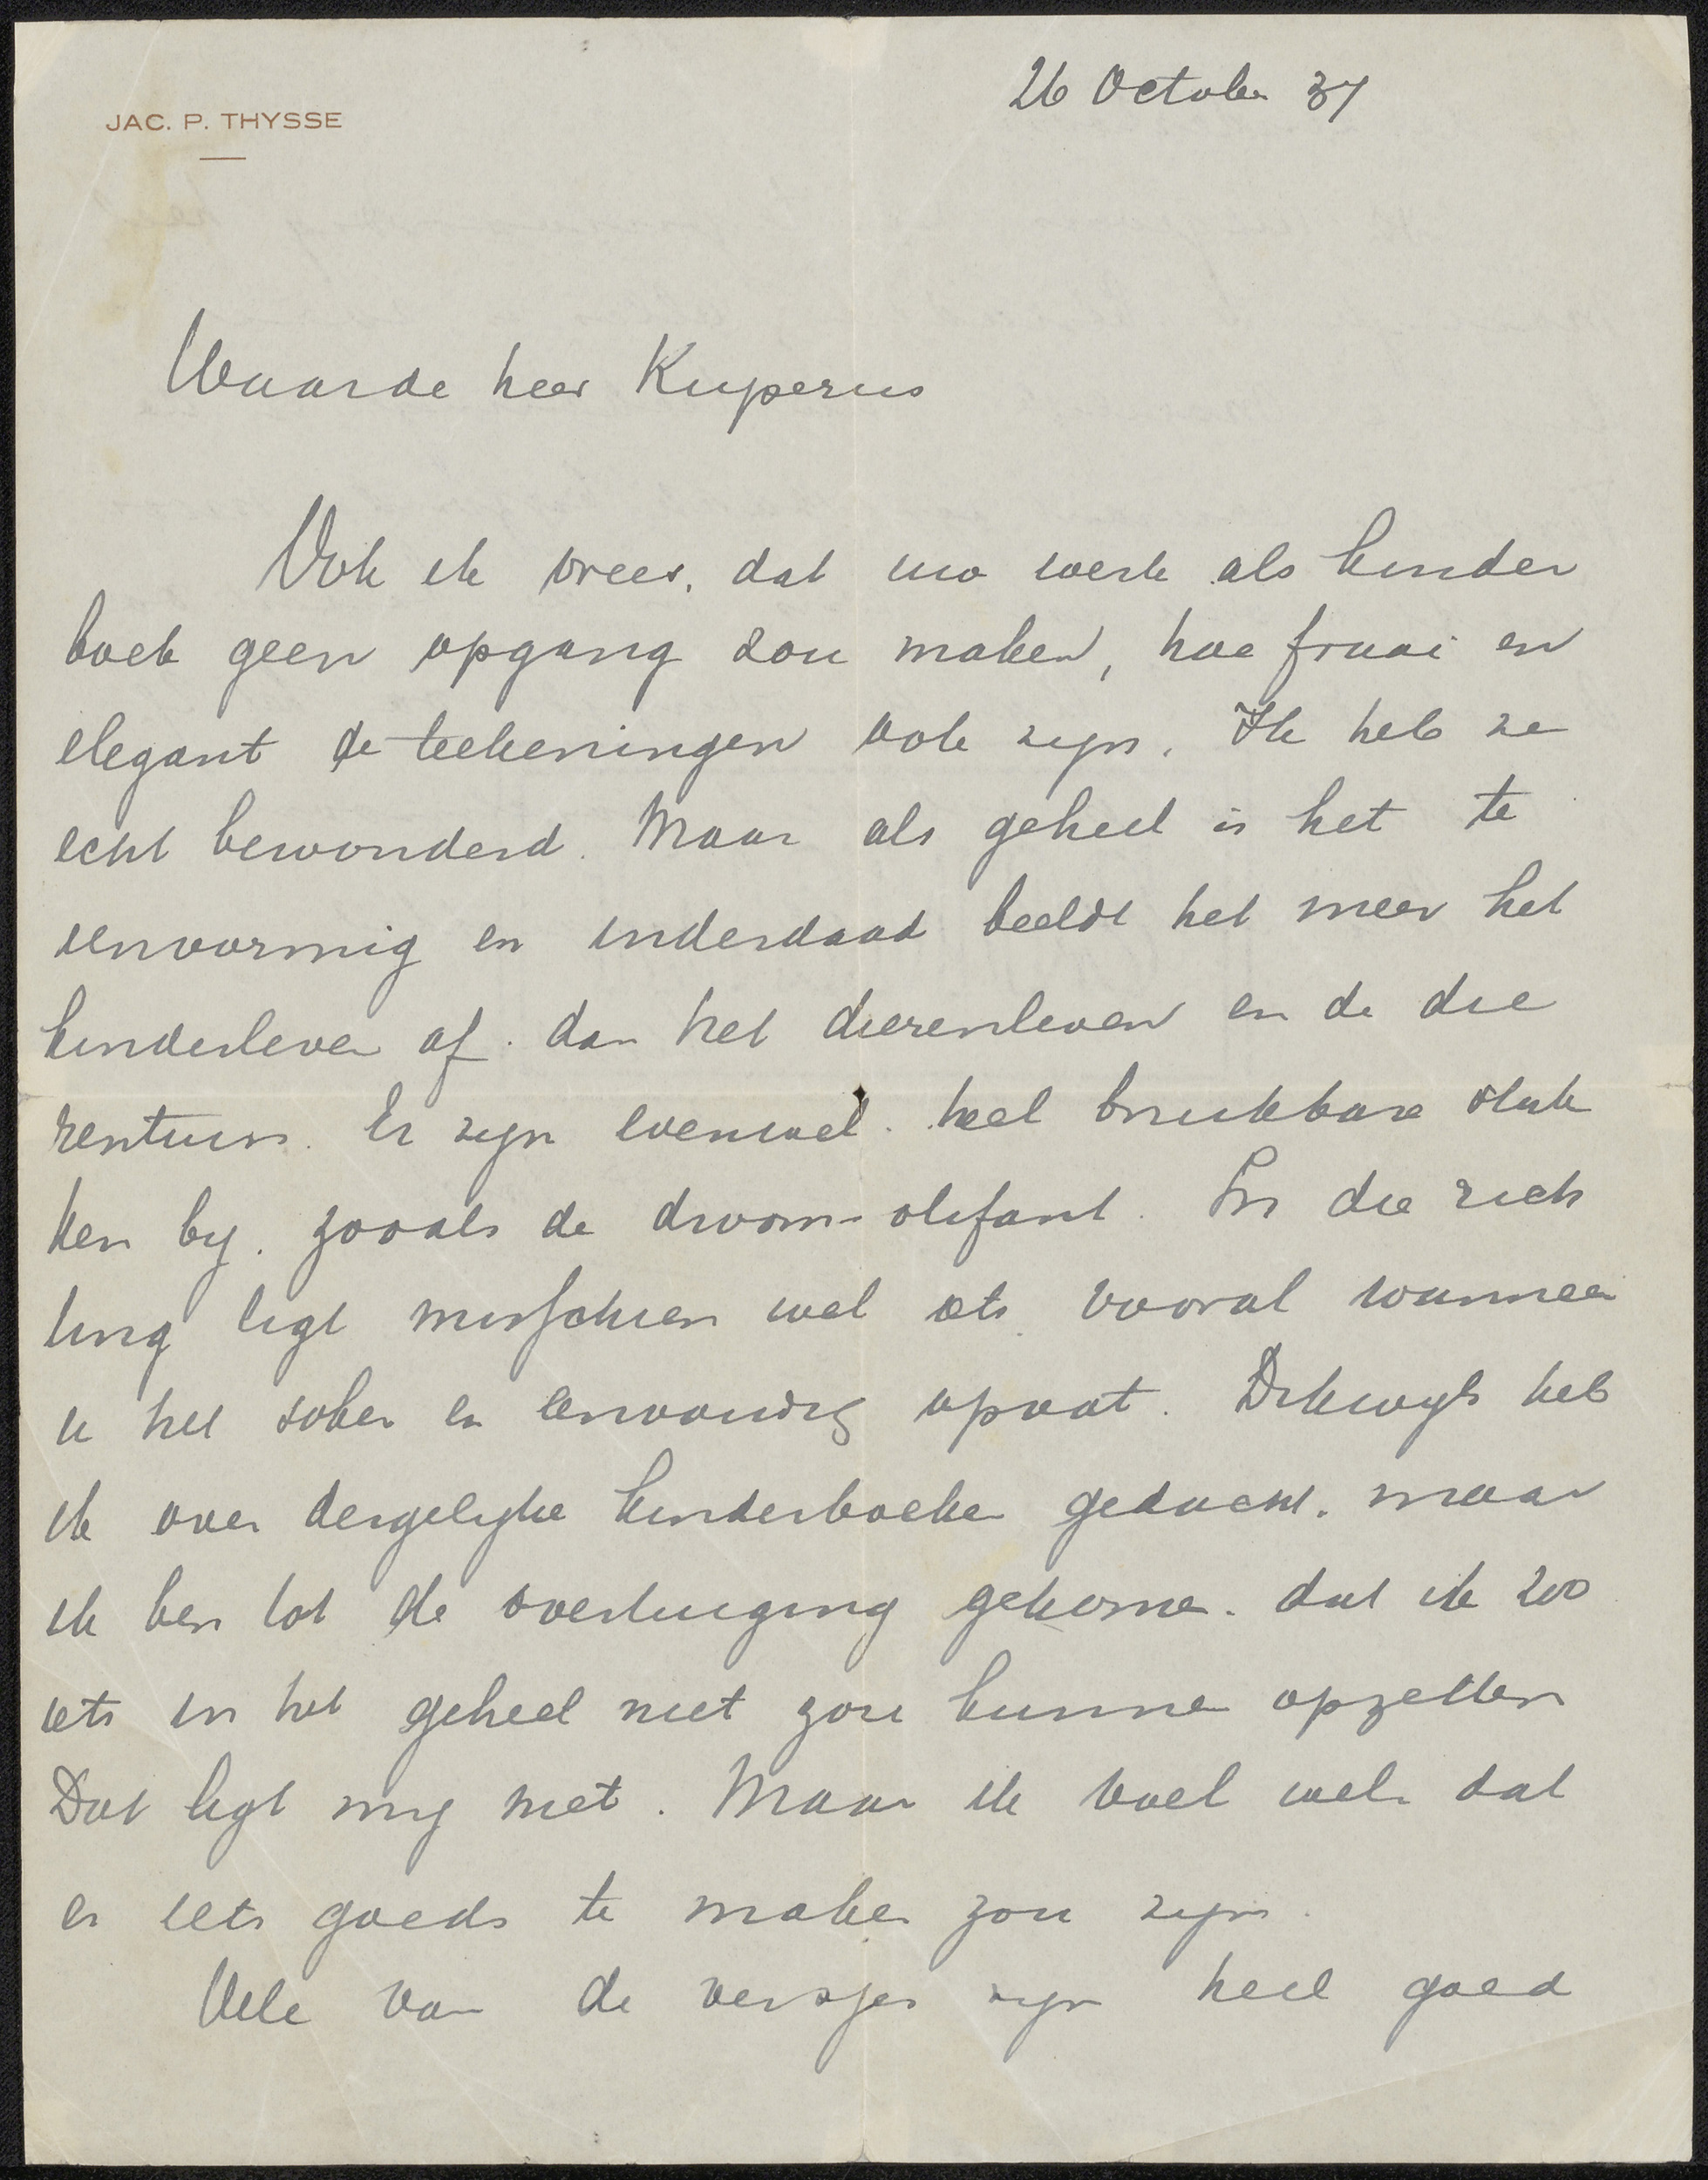 JAC. P. THYSSE
26 October 37
Waarde heer Kuperus
Ook ik vrees, dat uw werk als kinder
boek geen opgang zou maken, hoe fraai en
elegant de teekeningen ook zijn. Ik heb ze
echt bewonderd. Maar als geheel is het te
eenvormig en inderdaad beeldt het meer het
kinderleven af dan het dierenleven en de die
rentuin. Er zijn evenwel heel bruikbare stuk
ken bij, zooals de droom-olifant. In die rich
ting ligt misschien wel iets vooral wanneer
u het sober en eenvoudig opvat. Dikwijls heb
ik over dergelijke kinderboeken gedacht, maar
ik ben tot de overtuiging gekomen, dat ik zoo
iets in het geheel niet zou kunnen opzetten
Dat ligt mij niet. Maar ik voel wel, dat
er iets goeds te maken zou zijn.
Vele van de versjes zijn heel goed